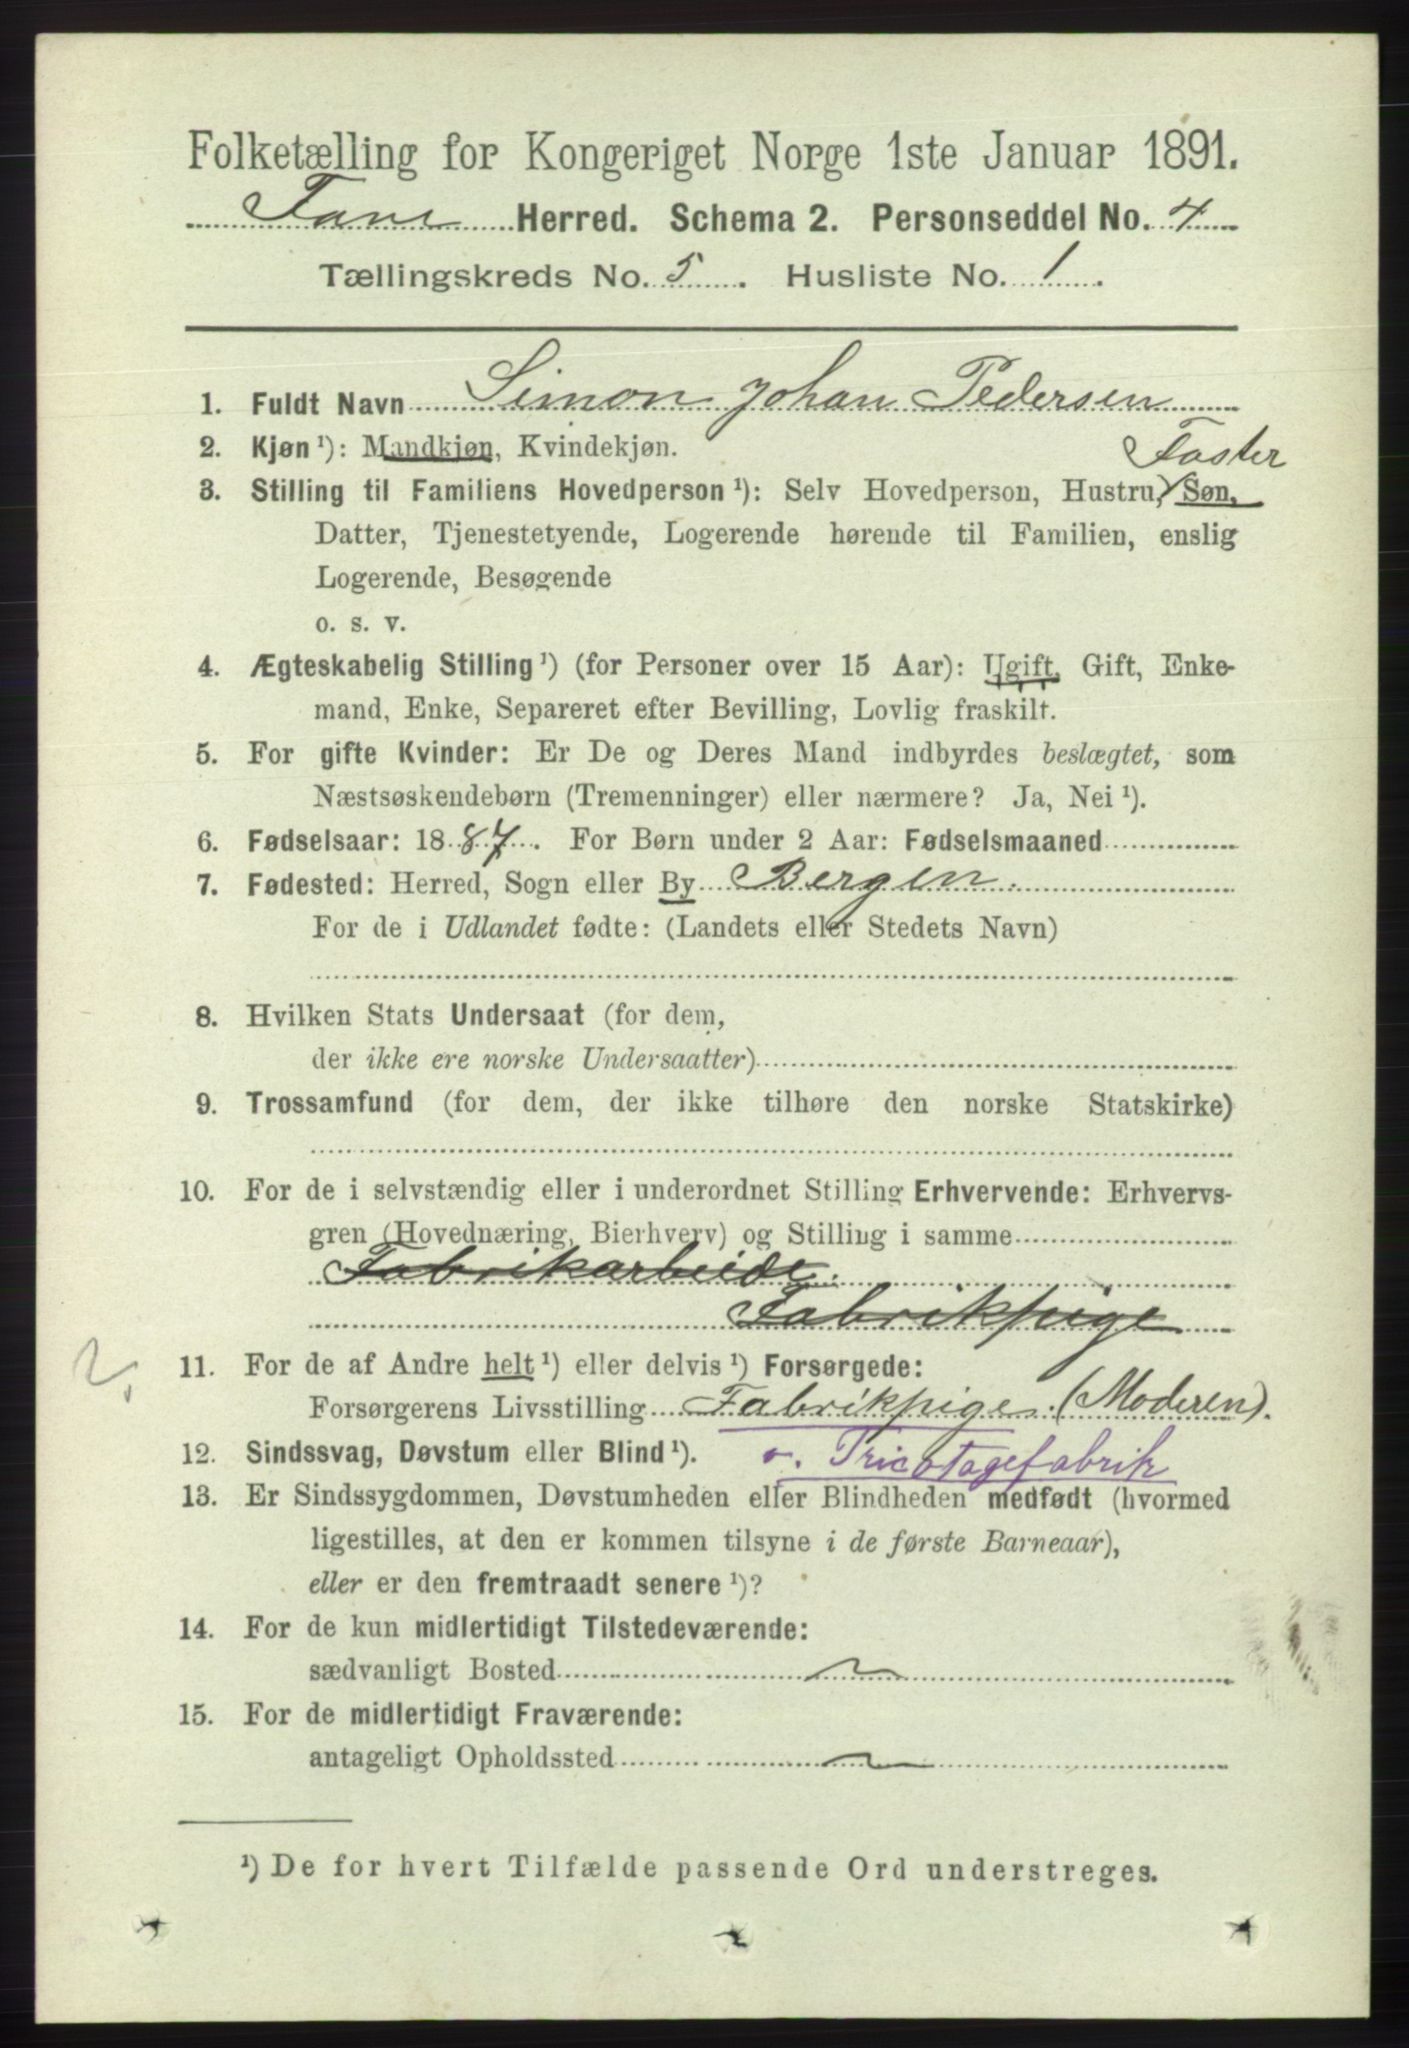 Folketælling for Kongeriget Norge 1ste Januar 1891.
Fane Herred. Schema 2. Personseddel No. 4
Tællingskreds No. 5. Husliste No. 1.
1. Fuldt Navn Simon Johan Pedersen
2. Kjøn ¹): Mandkjøn, Kvindekjøn.
Foster
3. Stilling til Familiens Hovedperson ¹): Selv Hovedperson, Hustru, Søn,
Datter, Tjenestetyende, Logerende hørende til Familien, enslig
Logerende, Besøgende
o. s. v.
4. Ægteskabelig Stilling ¹) (for Personer over 15 Aar): Ugift, Gift, Enke-
mand, Enke, Separeret efter Bevilling, Lovlig fraskilt.
5. For gifte Kvinder: Er De og Deres Mand indbyrdes beslægtet, som
Næstsøskendebørn (Tremenninger) eller nærmere? Ja, Nei ¹).
6. Fødselsaar: 1887. For Børn under 2 Aar: Fødselsmaaned
7. Fødested: Herred, Sogn eller By Bergen.
For de i Udlandet fødte: (Landets eller Stedets Navn)
8. Hvilken Stats Undersaat (for dem,
der ikke ere norske Undersaatter)
9. Trossamfund (for dem, der ikke tilhøre den norske Statskirke)
10. For de i selvstændig eller i underordnet Stilling Erhvervende: Erhvervs-
gren (Hovednæring, Bierhverv) og Stilling i samme
Fabrikarbeide.
Fabrikpige
2.
11. For de af Andre helt ¹) eller delvis ¹) Forsørgede:
Forsørgerens Livsstilling Fabrikpige (Moderen).
12. Sindssvag, Døvstum eller Blind ¹). v. Tricotagefabrik
13. Er Sindssygdommen, Døvstumheden eller Blindheden medfødt (hvormed
ligestilles, at den er kommen tilsyne i de første Barneaar),
eller er den fremtraadt senere ¹)?
14. For de kun midlertidigt Tilstedeværende:
sædvanligt Bosted
15. For de midlertidigt Fraværende:
antageligt Opholdssted
¹) De for hvert Tilfælde passende Ord understreges.